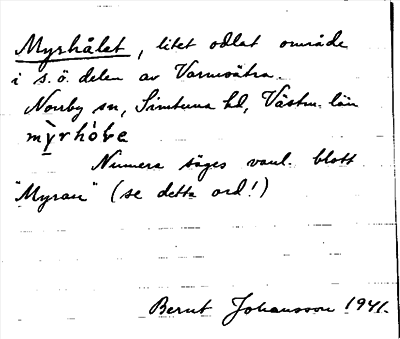 Myrhålet, litet odlat område
i s.ö. delen av Varmsätra.
Norrby sn, Simtuna hd, Västm. län
mỳrhò̀ḷe
Numera säges vanl. blott
"Myran" (se detta ord!)
Bernt Johansson 1941.